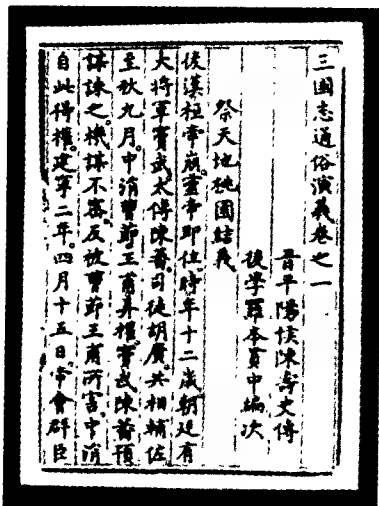 三國志通俗演義卷之一
晉平陽侯陳壽史傳
後學羅本貫中編次
祭天地桃園結義
後漢桓帝崩靈帝即位時年十二歲朝廷有
大將軍竇武太傅陳蕃司徒胡廣共相輔佐
至秋九月中涓曹節王甫弄權竇武陳蕃預
謀誅之機謀不密反被曹節王甫所害中涓
自此得權建寧二年四月十五日帝會群臣